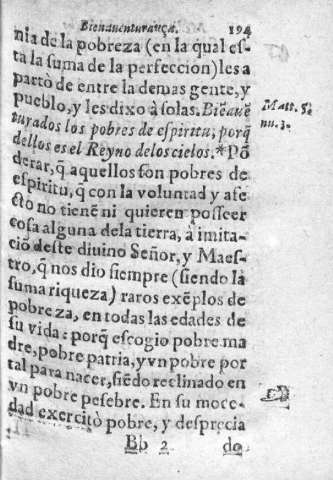 Bienauenturança. 194
nia de la pobreza (en la qual es-
ta la suma de la perfeccion) les a
partò de entre la demas gente, y
pueblo, y les dixo à solas. Biẽauẽ
turados los pobres de espiritu, porq̃
dellos es el Reyno de los cielos. *Põ
derar, q̃ aquellos son pobres de
espiritu, q̃ con la voluntad y afe
cto no tienẽ ni quieren posseer
cosa alguna dela tierra, à imita-
ciõ deste diuino Señor, y Maes-
tro, q̃ nos dio siempre (siendo la
suma riqueza) raros exẽplos de
pobreza, en todas las edades de
su vida: porq̃ escogio pobre ma
dre, pobre patria, y vn pobre por
tal para nacer, siẽdo reclinado en
vn pobre pesebre. En su moce-
dad exercitò pobre, y desprecia
Bb 2 do
Matt. 5.
nu. 3.